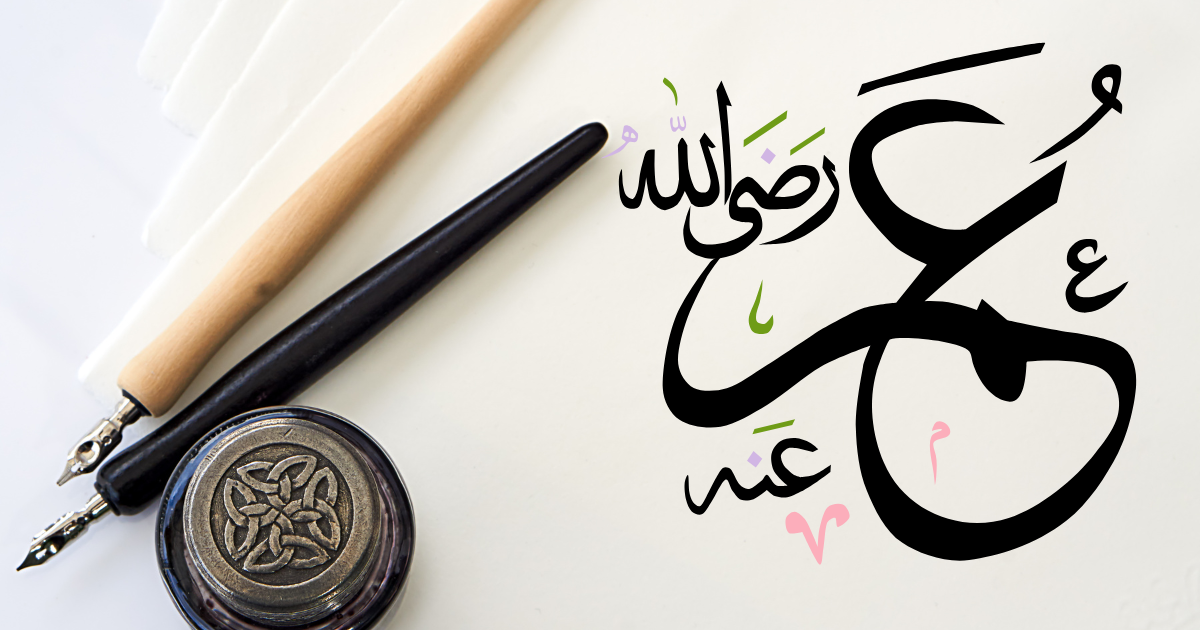 عُمَر
رَضَي اللّٰهُ
عَنه